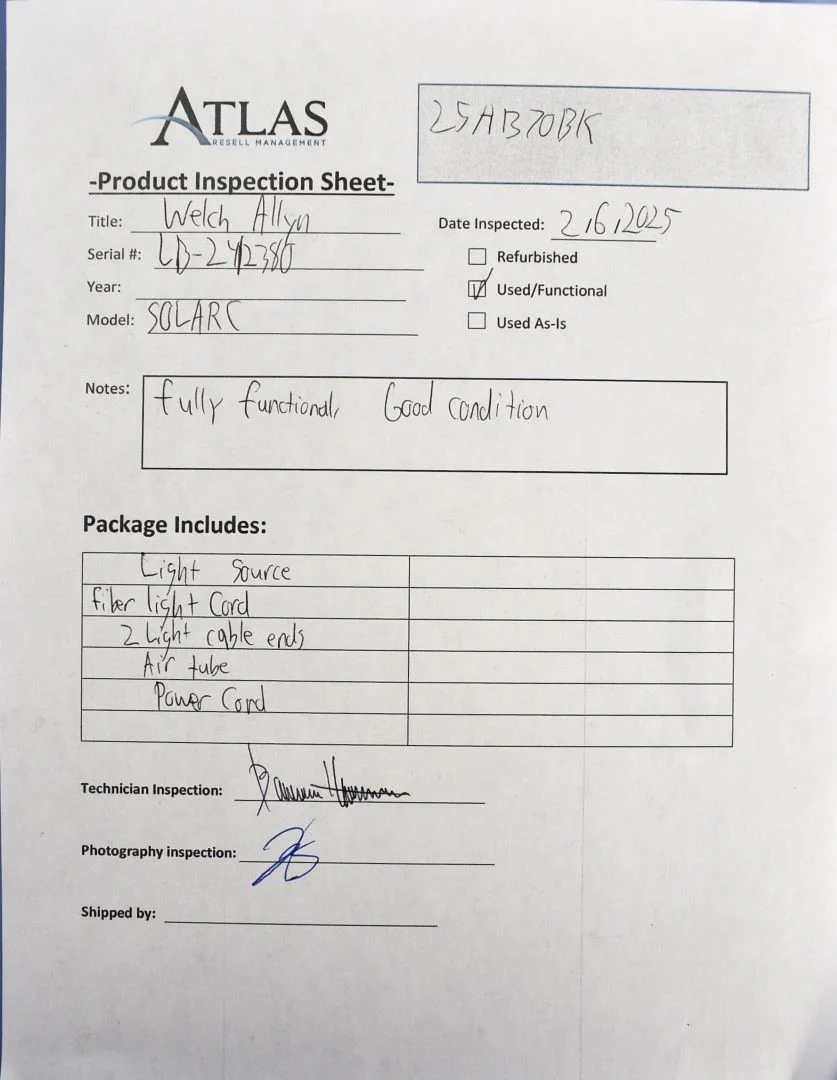 ATLAS
RESELL MANAGEMENT
25AB70BK
-Product Inspection Sheet-
Title: Welch Allyn
Date Inspected: 2/6/2025
Serial #: LB-242380
Refurbished
Year:
Used/Functional
Model: SOLARC
Used As-Is
Notes: fully functional, Good condition
Package Includes:
Light Source
fiber light Cord
2 Light cable ends
Air tube
Power Cord
Technician Inspection:
Photography inspection:
Shipped by: